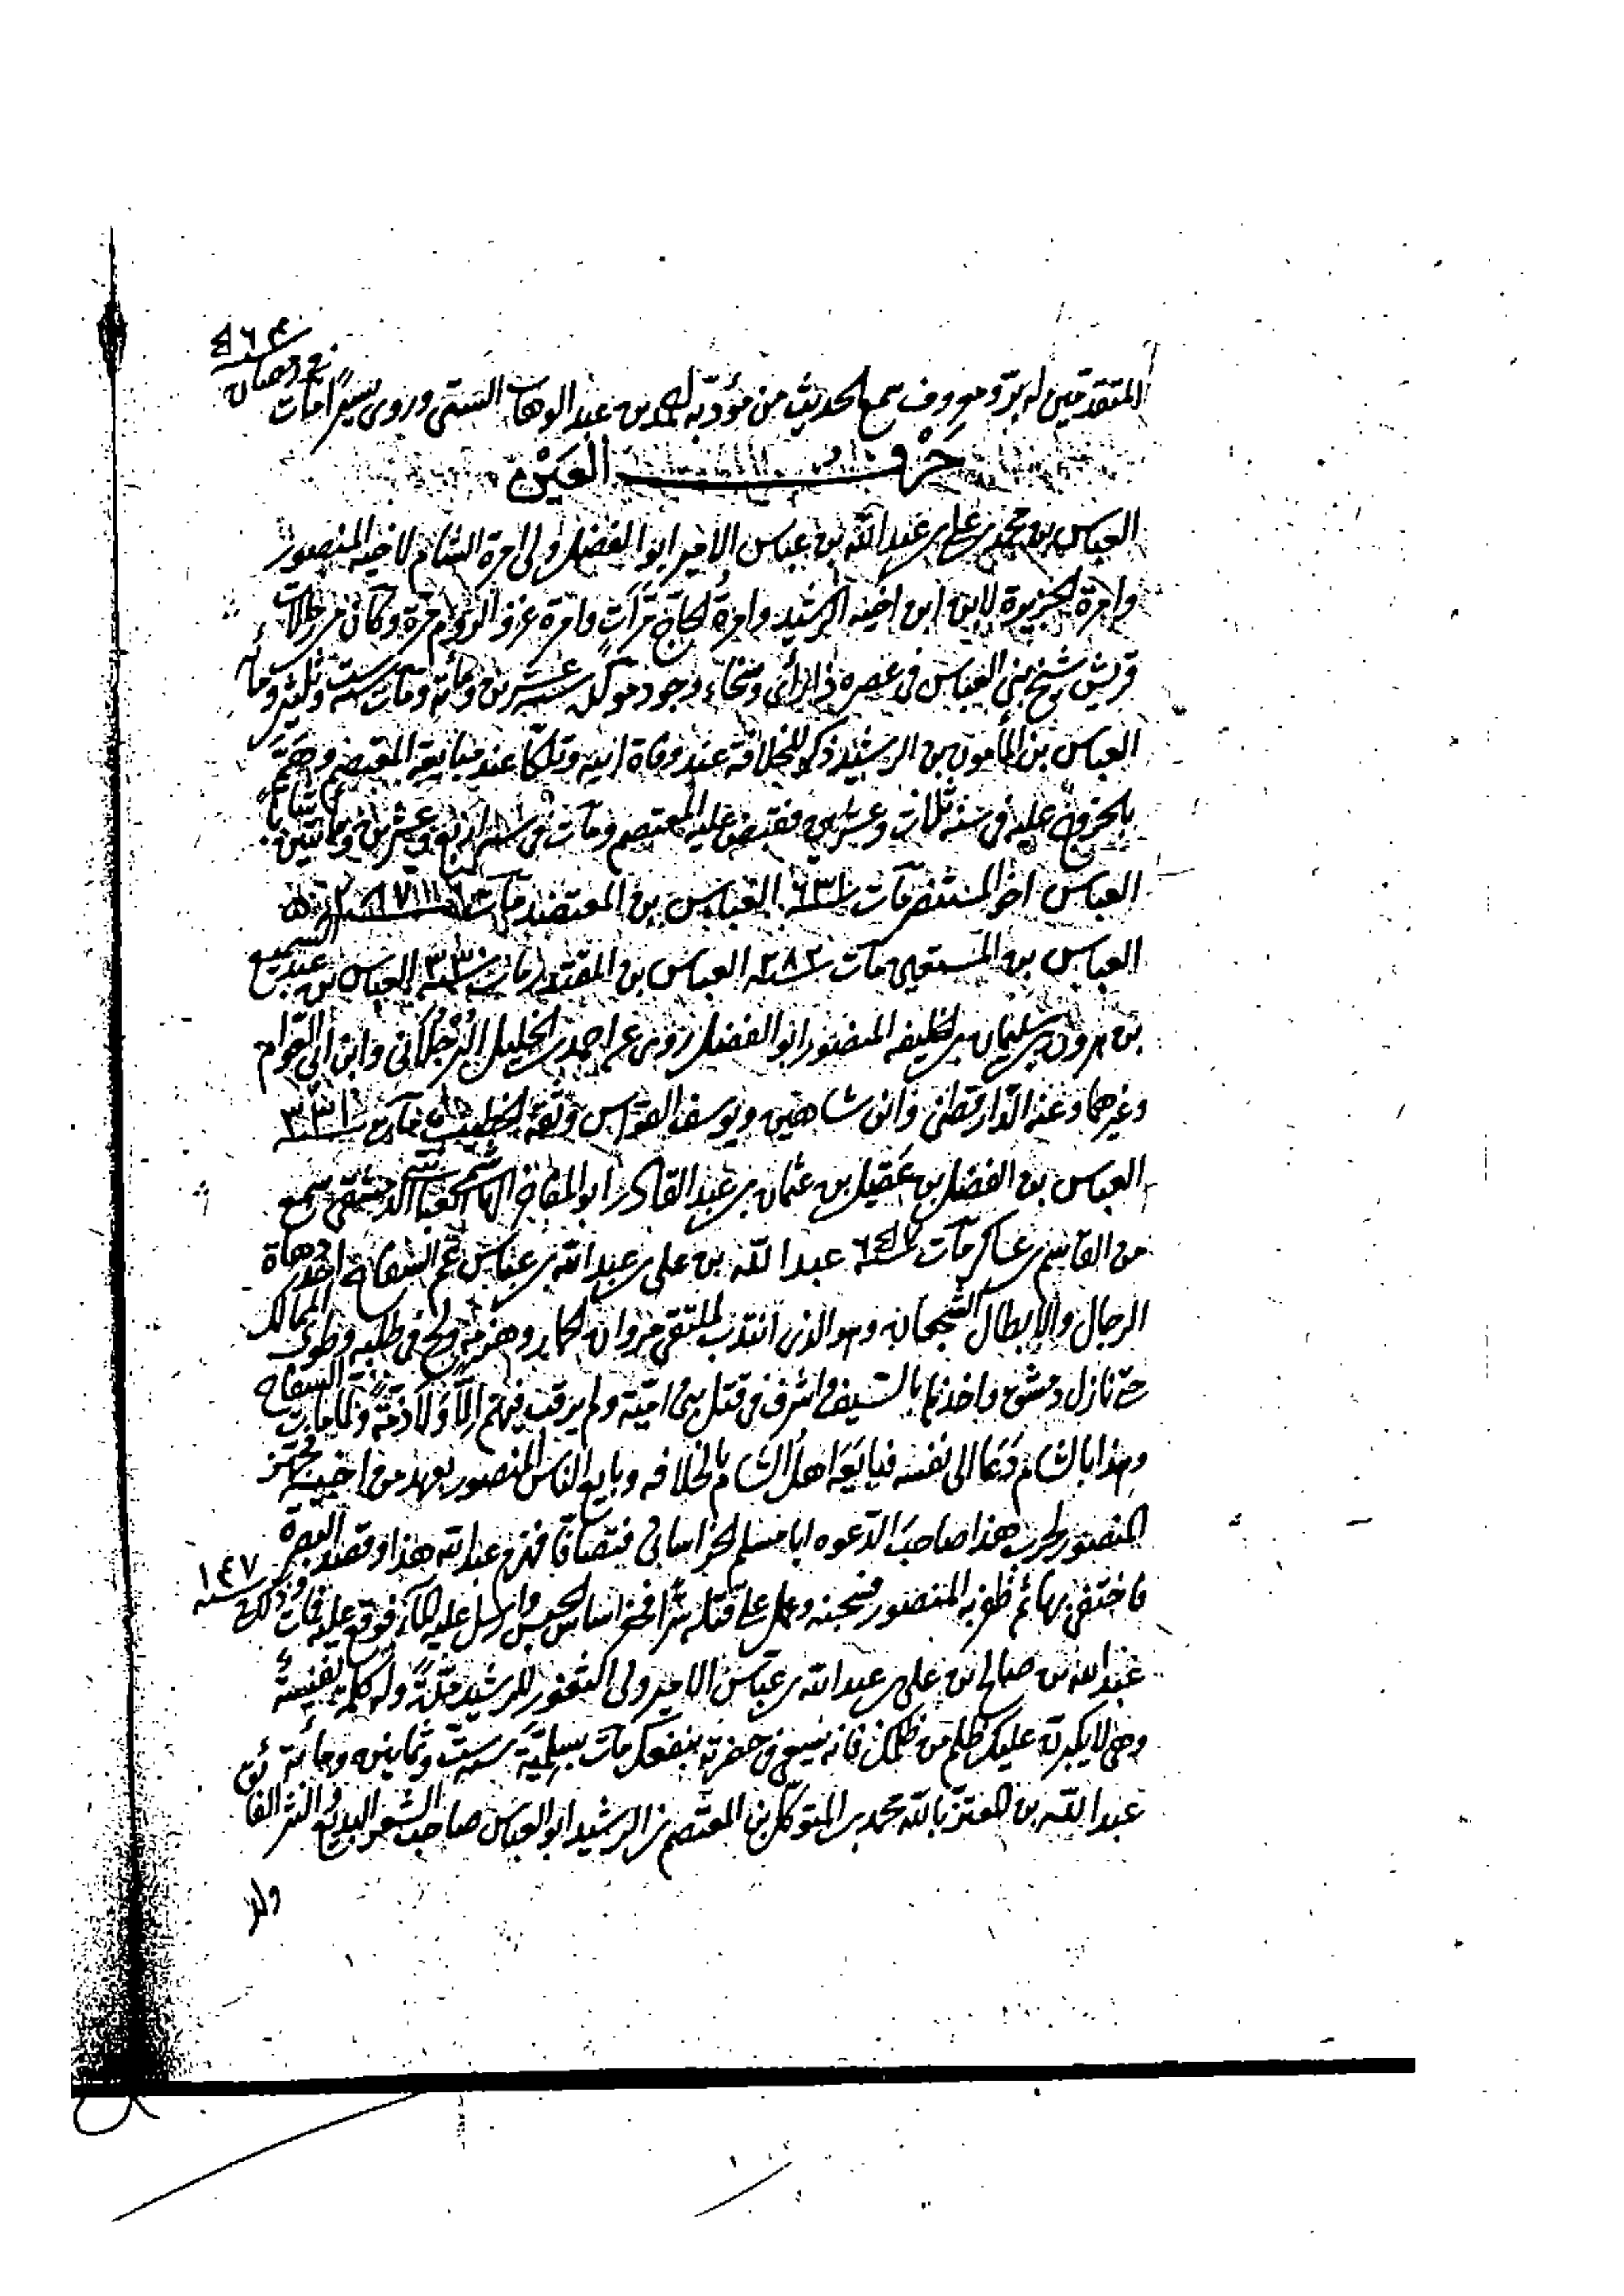 المتقدمين له بر ومعروف سمع الحديث من مؤدبه احمد بن عبد الوهاب السيبى وروى يسيرا مات
فى رمضان سنة
حَرْف العَيْن
العباس بن محمد بن على بن عبد الله بن عباس الامير ابو الفضل ولى امرة الشام لاخيه المنصور
وامرة الجزيرة لابن ابن اخيه الرشيد وامرة الحاج مرات وامرة غزو الروم مرة وكان من رجالات
قريش شيخ بنى العباس فى عصره ذا رأى وسخاء وجود مولده سنة عشرين ومائة ومات سنة ست وثمانين ومائة
العباس بن المأمون بن الرشيد ذكر للخلافة عند وفاة ابيه وتلكأ عند مبايعة المعتصم وهمّ
بالخروج عليه فى سنة ثلاث وعشرين فقبض عليه المعتصم ومات فى سنة اربع وعشرين ومائتين
العباس اخو المستنصر مات سنة ٦٣١ العباس بن المعتضد مات سنة
العباس بن المستعين مات سنة ٢٨٢ العباس بن المقتدر مات سنة العباس بن عبد السميع
بن هرون بن سليمان بن الخليفه المنصور ابو الفضل روى عن احمد بن الخليل البرجلانى وابن ابى العوام
وغيرهما وعنه الدارقطنى وابن شاهين ويوسف القواس وثقه الخطيب مات سنة ٣٣١
العباس بن الفضل بن عقيل بن عثمان بن عبد القاهر ابو المفاخر الهاشمى العباسى الدمشقى سمع
من القاسم بن عساكر مات سنة عبد الله بن على بن عبد الله بن عباس عم السفاح احد دهاة
الرجال والابطال الشجعان وهو الذى انتدب لملتقى مروان الحمار وهزمه ولج فى طلبه وطوى الممالك
حتى نازل دمشق واخذها بالسيف واسرف فى قتل بنى امية ولم يرقب فيهم إلاّ ولا ذمة ولما مات السفاح
وهذا بالشام دَعَا الى نفسه فبايَعَه اهل الشام بالخلافه وبايع الناس المنصور بعهد من اخيه فجهز
المنصور لحرب هذا صاحبَ الدعوه ابا مسلم الخراسانى فتصافا فهزم عبد الله هذا وقصد البصرة
فاختفى بها ثم ظفر به المنصور فسجنه وعمل على قتله سرا فحفر اساس الحبس وارسل عليه الماء فوقع عليه فمات وذلك فى سنة ١٤٧
عبد الله بن صالح بن على بن عبد الله بن عباس الامير ولى الثغور للرشيد مدّة وله كلمة نفيسة
وهى لا يكبرن عليك ظلم من ظلمك فانه يسعى فى مضرته بنفعك مات بسلمية سنة ست وثمانين ومائة
عبد الله بن المعتز بالله محمد بن المتوكل بن المعتصم بن الرشيد ابو العباس صاحب الشعر البديع والنثر الفائق
ولد